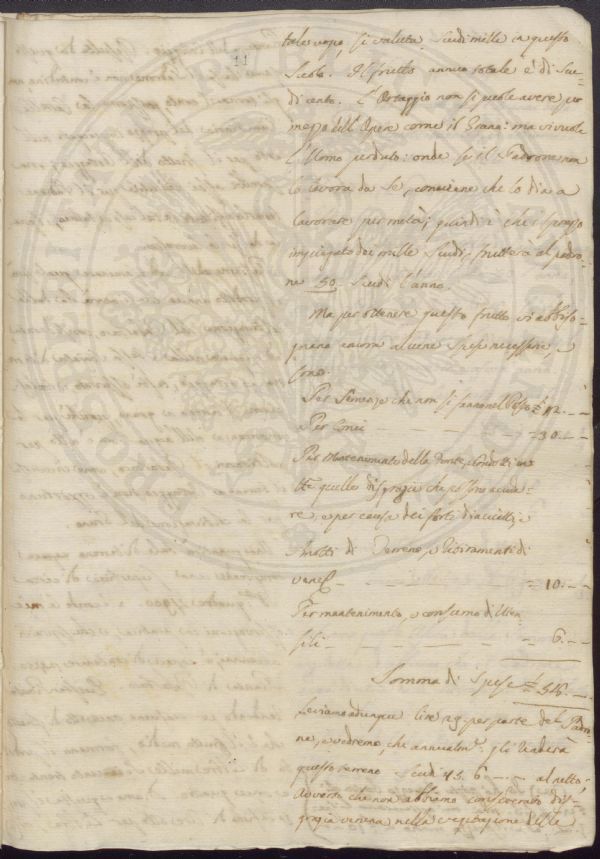 11
tale uopo, si valuta Scudi mille in questo
Suolo. Il frutto annuo totale è di Scu-
di cento. L'Ortaggio non si puole avere per
mezzo dell'Opere come il Grano: ma vi vuole
l'Uomo perduto: onde se il Padrone non
lo lavora da Se, conviene che lo dia a
lavorare per metà; quindi è che
impiegato dei mille Scudi, frutterà al padro-
ne 50 Scudi l'anno.
Ma per ottenere questo frutto vi abbiso-
gnano ancora alcune Spese necessarie, e
sono.
Per Semenze che non si fanno nel £ 12. --
Per Conci = 30. --
Per Mantenimento delle
tte quelle disgrazie che possono accade-
re, e per causa dei forti diacci,
Smotti di Terreno, e
= 10. --
Per mantenimento, e consumo d'Uten-
sili = 6. --
Somma di Spese £ 58. --
Leviamo adunque lire 29. per parte del Padro-
ne, e vedremo, che annualm.e gli renderà
questo terreno Scudi 45. 6 -- al netto,
Avverto che non abbiamo considerato dis-
grazia veruna nella vegetazione delle